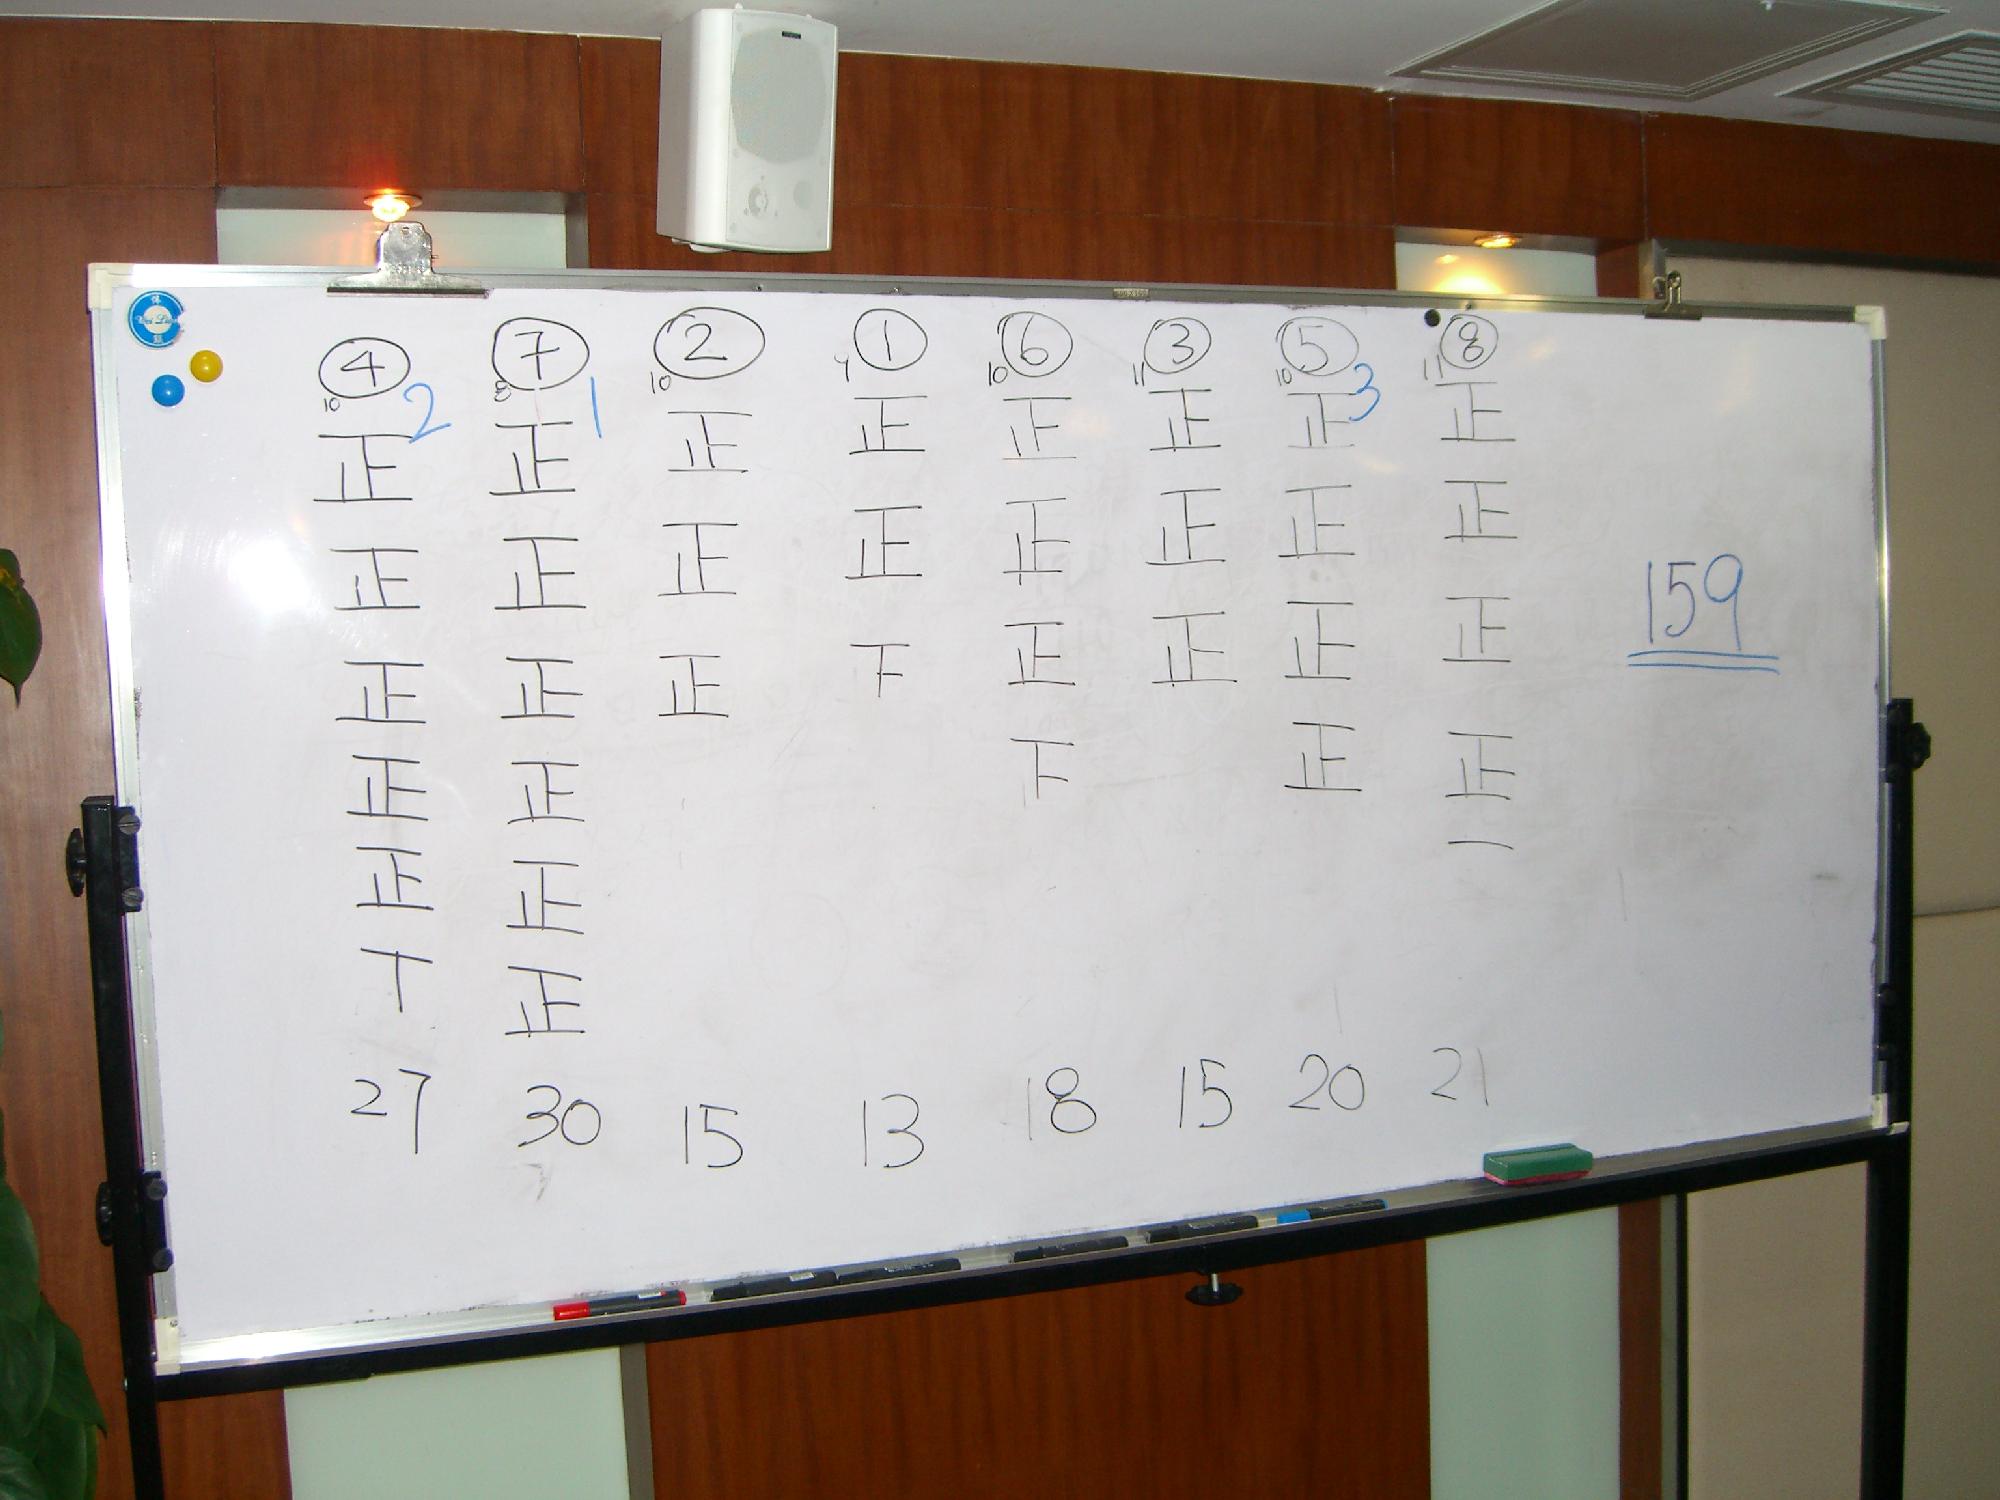 ④ ⑦ ② ① ⑥ ③ ⑤ ⑧
10 8 10 10 11 10 11
2 1 3
正 正 正 正 正 正 正 正
正 正 正 正 正 正 正 正
正 正 正 下 正 正 正 正
正 正 下 正 正
正 正 一
丅 正
27 30 15 13 18 15 20 21
159